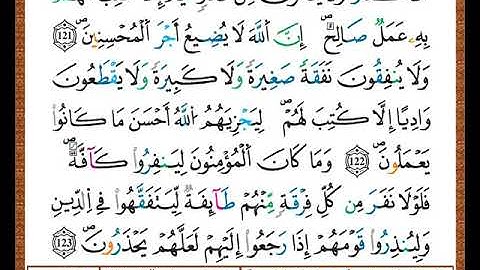 بِهِۦ عَمَلٌ صَالِحٌ ۚ إِنَّ ٱللَّهَ لَا يُضِيعُ أَجْرَ ٱلْمُحْسِنِينَ ۝١٢١
وَلَا يُنفِقُونَ نَفَقَةً صَغِيرَةً وَلَا كَبِيرَةً وَلَا يَقْطَعُونَ
وَادِيًا إِلَّا كُتِبَ لَهُمْ لِيَجْزِيَهُمُ ٱللَّهُ أَحْسَنَ مَا كَانُوا۟
يَعْمَلُونَ ۝١٢٢ وَمَا كَانَ ٱلْمُؤْمِنُونَ لِيَنفِرُوا۟ كَآفَّةً ۚ
فَلَوْلَا نَفَرَ مِن كُلِّ فِرْقَةٍ مِّنْهُمْ طَآئِفَةٌ لِّيَتَفَقَّهُوا۟ فِى ٱلدِّينِ
وَلِيُنذِرُوا۟ قَوْمَهُمْ إِذَا رَجَعُوٓا۟ إِلَيْهِمْ لَعَلَّهُمْ يَحْذَرُونَ ۝١٢٣